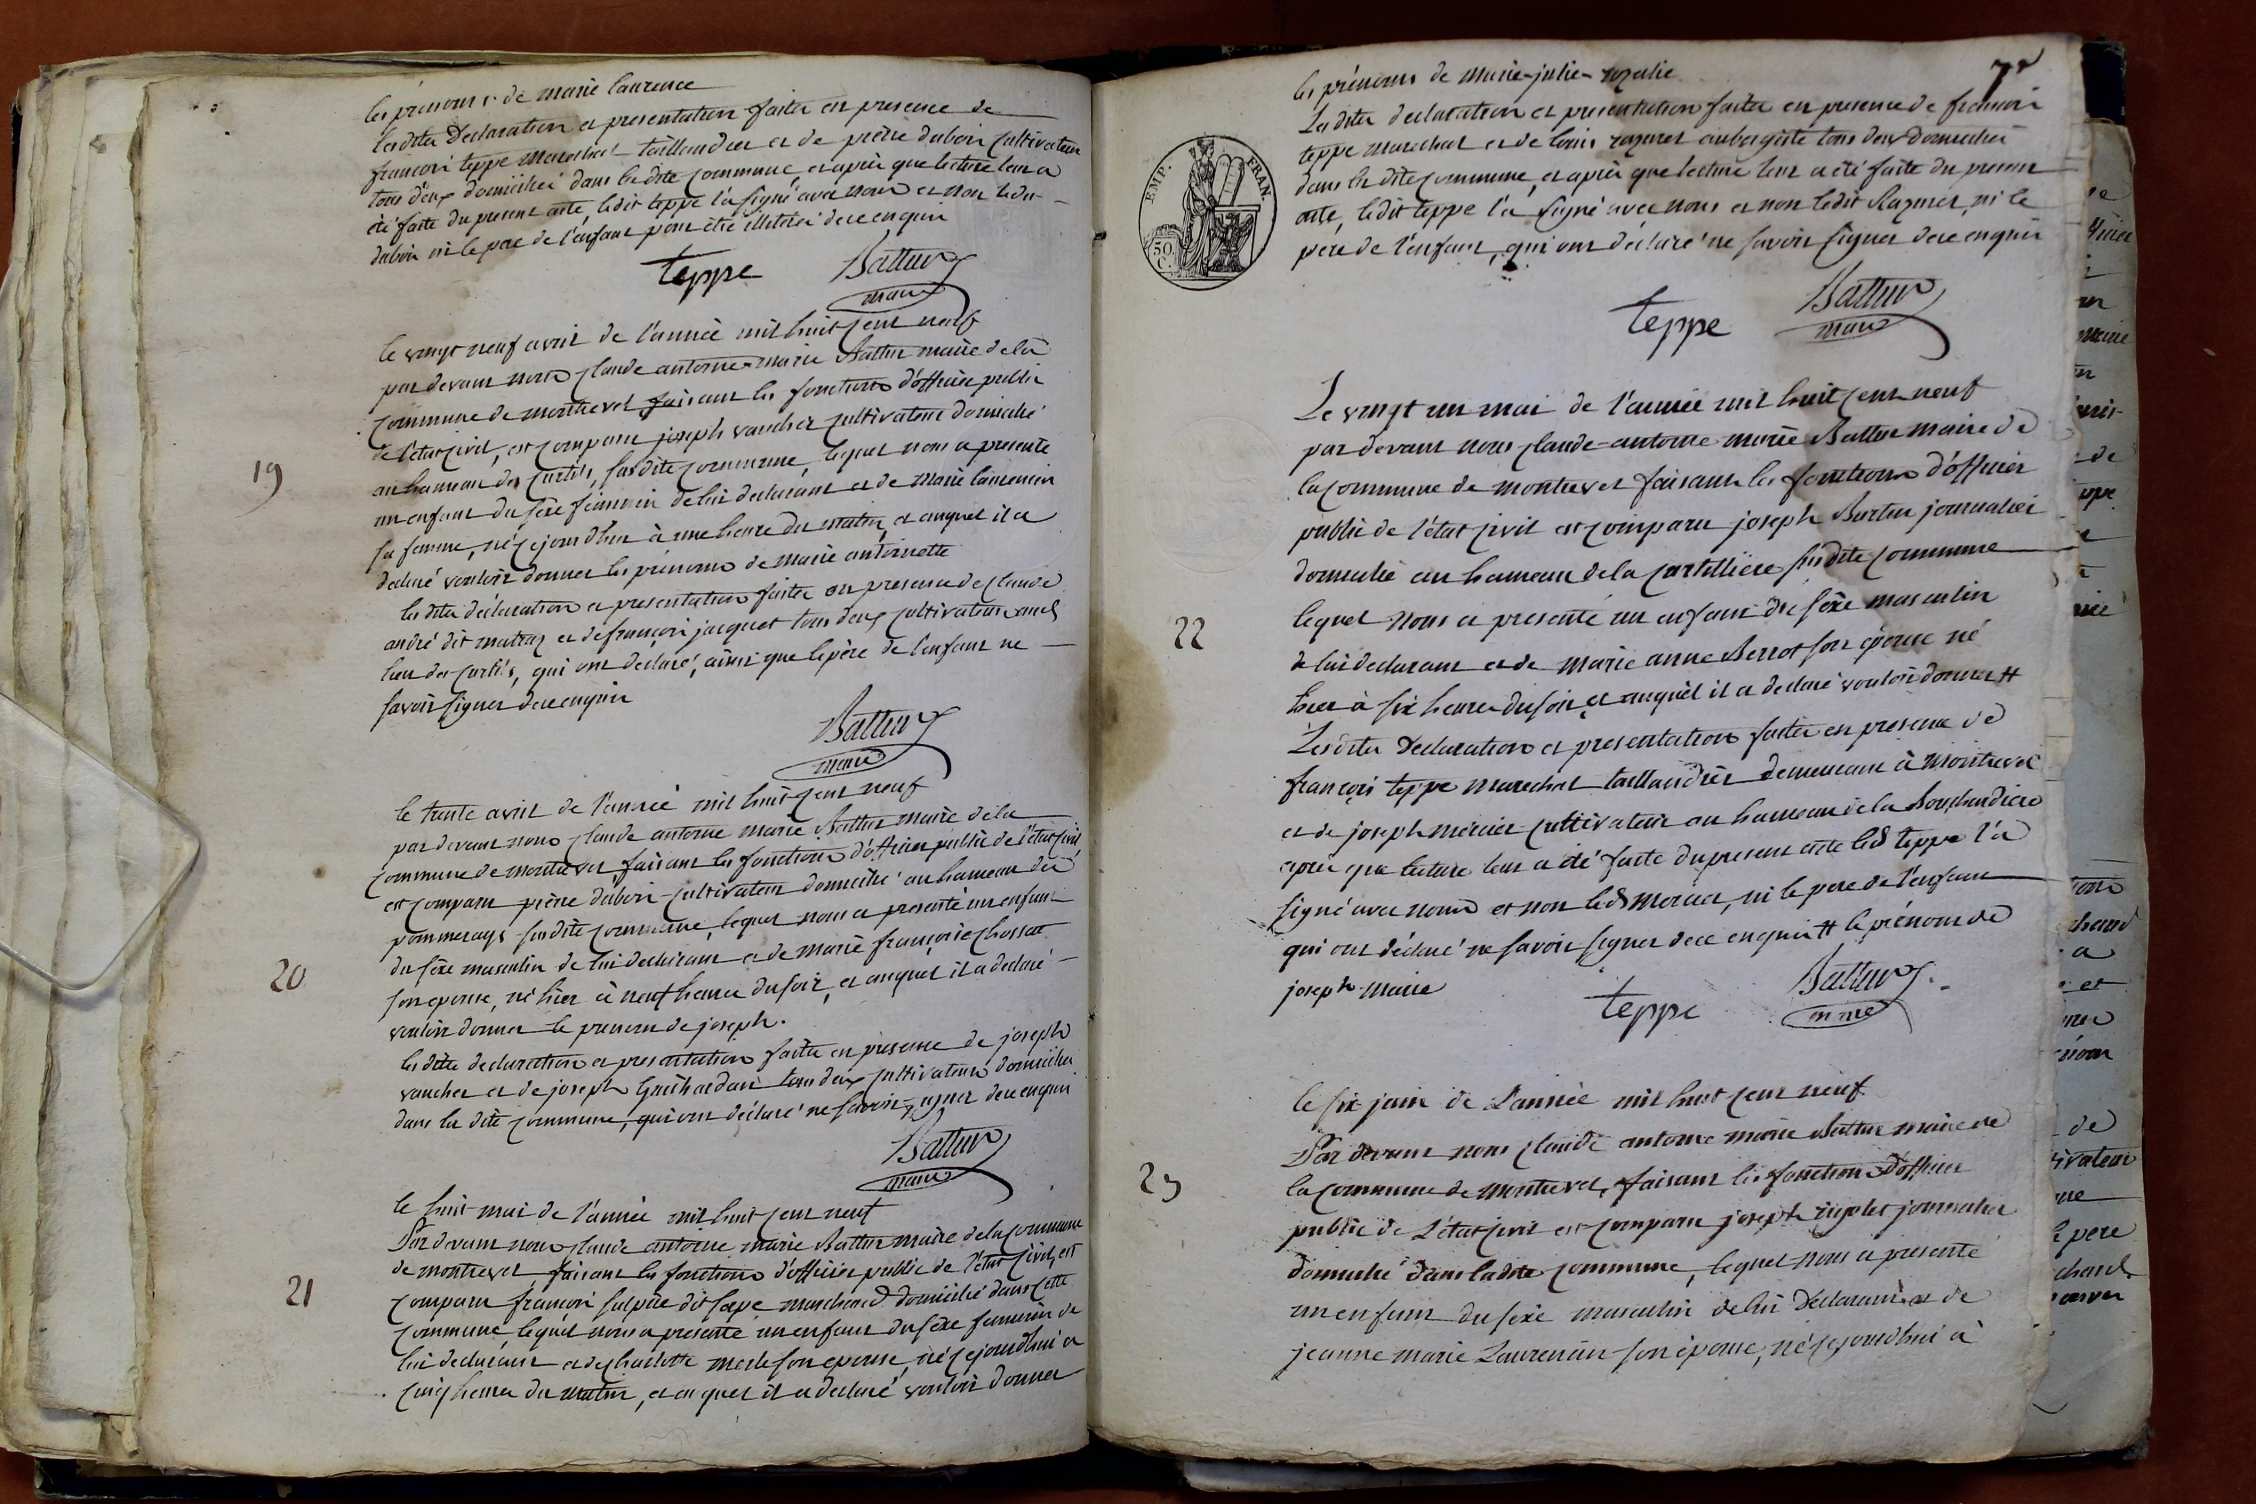 les prenoms de marie laurence
lesdites declaration et presentation faites en presence de
francois teppe marechal taillandier et de pierre dubois cultivateur
tous deux domiciliés dans la dite commune, et après que lecture leur a
été faite du present acte, ledit teppe l'a signé avec nous et non ledit
dubois ni le pere de l'enfant pour être illitérés de ce enquis
teppe Battur
maire
le vingt neuf avril de l'année mil huit cent neuf
par devant nous claude antoine marie Battur maire de la
commune de montrevel faisant les fonctions d'officier public
de l'etat civil, est comparu joseph vaucher cultivateur domicilié
au hameau des curtis, susdite commune, lequel nous a presenté
19
un enfant du sexe féminin de lui declarant et de marie laurencin
sa femme, né cejourdhui à une heure du matin, et auquel il a
declaré vouloir donner les prénoms de marie antoinette
lesdites déclaration et presentation faites en presence de claude
andré dit matray et de françois jacquet tous deux cultivateurs aud
lieu des curtis, qui ont declaré, ainsi que le père de l'enfant ne
savoir signer de ce enquis
Battur
maire
le trente avril de l'année mil huit cent neuf
par devant nous claude antoine marie Battur maire de la
commune de montrevel, faisant les fonctions d'officier public de l'état civil
est comparu pierre dubois cultivateur domicilié au hameau des
pommerays susdite commune, lequel nous a presenté un enfant
du sexe masculin de lui declarant et de marie françoise chossat
20
son epouse, né hier à neuf heures du soir, et auquel il a declaré
vouloir donner le prenom de joseph.
lesdites declaration et presentation faites en presence de joseph
vaucher et de joseph Guichardan tous deux cultivateurs domiciliés
dans la dite commune, qui ont déclaré ne savoir signer de ce enquis
Battur
maire
le huit mai de l'année mil huit cent neuf
Par devant nous claude antoine marie Battur maire de la commune
de montrevel, faisant les fonctions d'officier public de l'état civil, est
21
comparu francois sulpice dit marchand domicilié dans cette
commune, lequel nous a presenté un enfant du sexe feminin de
lui declarant et de charlotte merle son epouse, né cejourdhui à
cinq heures du matin, et auquel il a declaré vouloir donner
72
les prénoms de Marie-julie-rozalie
Lesdites declaration et presentation faites en presence de francois
teppe marechal et de louis razurel aubergiste tous deux domiciliés
dans la dite commune, et après que lecture leur a été faite du present
acte, ledit teppe l'a signé avec nous et non ledit Razurel, ni le
père de l'enfant, qui ont declaré ne savoir signer de ce enquis
EMP. FRAN.
50
C.
teppe Battur
maire
Le vingt un mai de l'année mil huit cent neuf
par devant nous claude-antoine marie Battur maire de
la commune de montrevel faisant les fonctions d'officier
public de l'état civil est comparu joseph Burtin journalier
domicilié au hameau de la curtillière susdite commune
lequel nous a presenté un enfant du sexe masculin
22
de lui declarant et de marie anne Perrot son épouse né
hier à six heures du soir, et auquel il a declaré vouloir donner #
Lesdites Declaration et presentation faites en presence de
françois teppe marechal taillandier demeurant à montrevel
et de joseph mercier cultivateur au hameau de la Bouchardiere
après que lecture leur a été faite du present acte led teppe l'a
signé avec nous et non led mercier, ni le pere de l'enfant
qui ont déclaré ne savoir signer de ce enquis # le prénoms de
joseph marie
teppe Battur
maire
le six juin de L'année mil huit cent neuf
Par devant nous claude antoine marie Battur maire de
23
la commune de montrevel, faisant les fonctions d'officier
public de L'état civil est comparu joseph rigolet journalier
domicilié dans ladite commune, lequel nous a presenté
un enfant du sexe masculin de lui declarant et de
jeanne marie Laurencin son épouse, né cejourdhui à